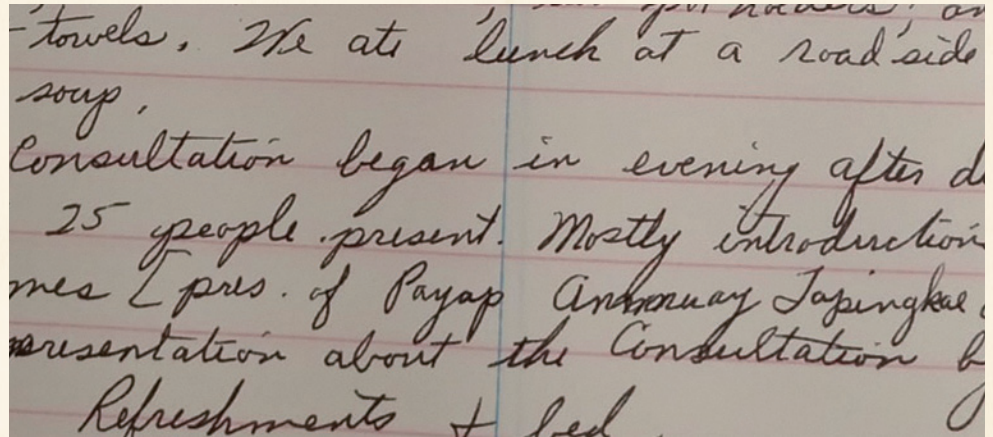 pot holders, an
-towels. We ate lunch at a road side
soup.
Consultation began in evening after d
25 people present. Mostly introduction
mes [pres. of Payap Ammnuay Tapingkae
presentation about the Consultation b
Refreshments + bed.